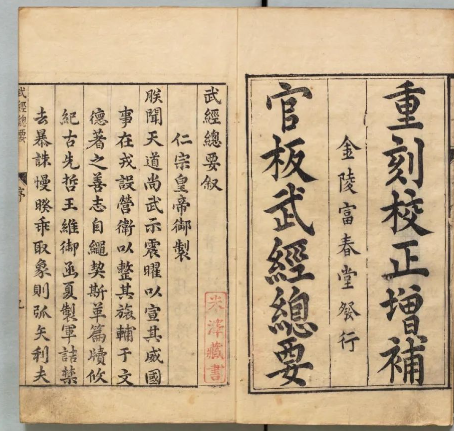 重刻校正增補
金陵富春堂發行
官板武經總要
武經總要叙
仁宗皇帝御製
朕聞天道尚武示震曜以宣其威國
事在戎設營衛以整其旅輔于文
德著之善志自繩契斯革篇牘攸
紀古先哲王維御函夏製軍詰禁
去暴誅慢睽乖取象則弧矢利夫
武經總要
序
米澤藏書